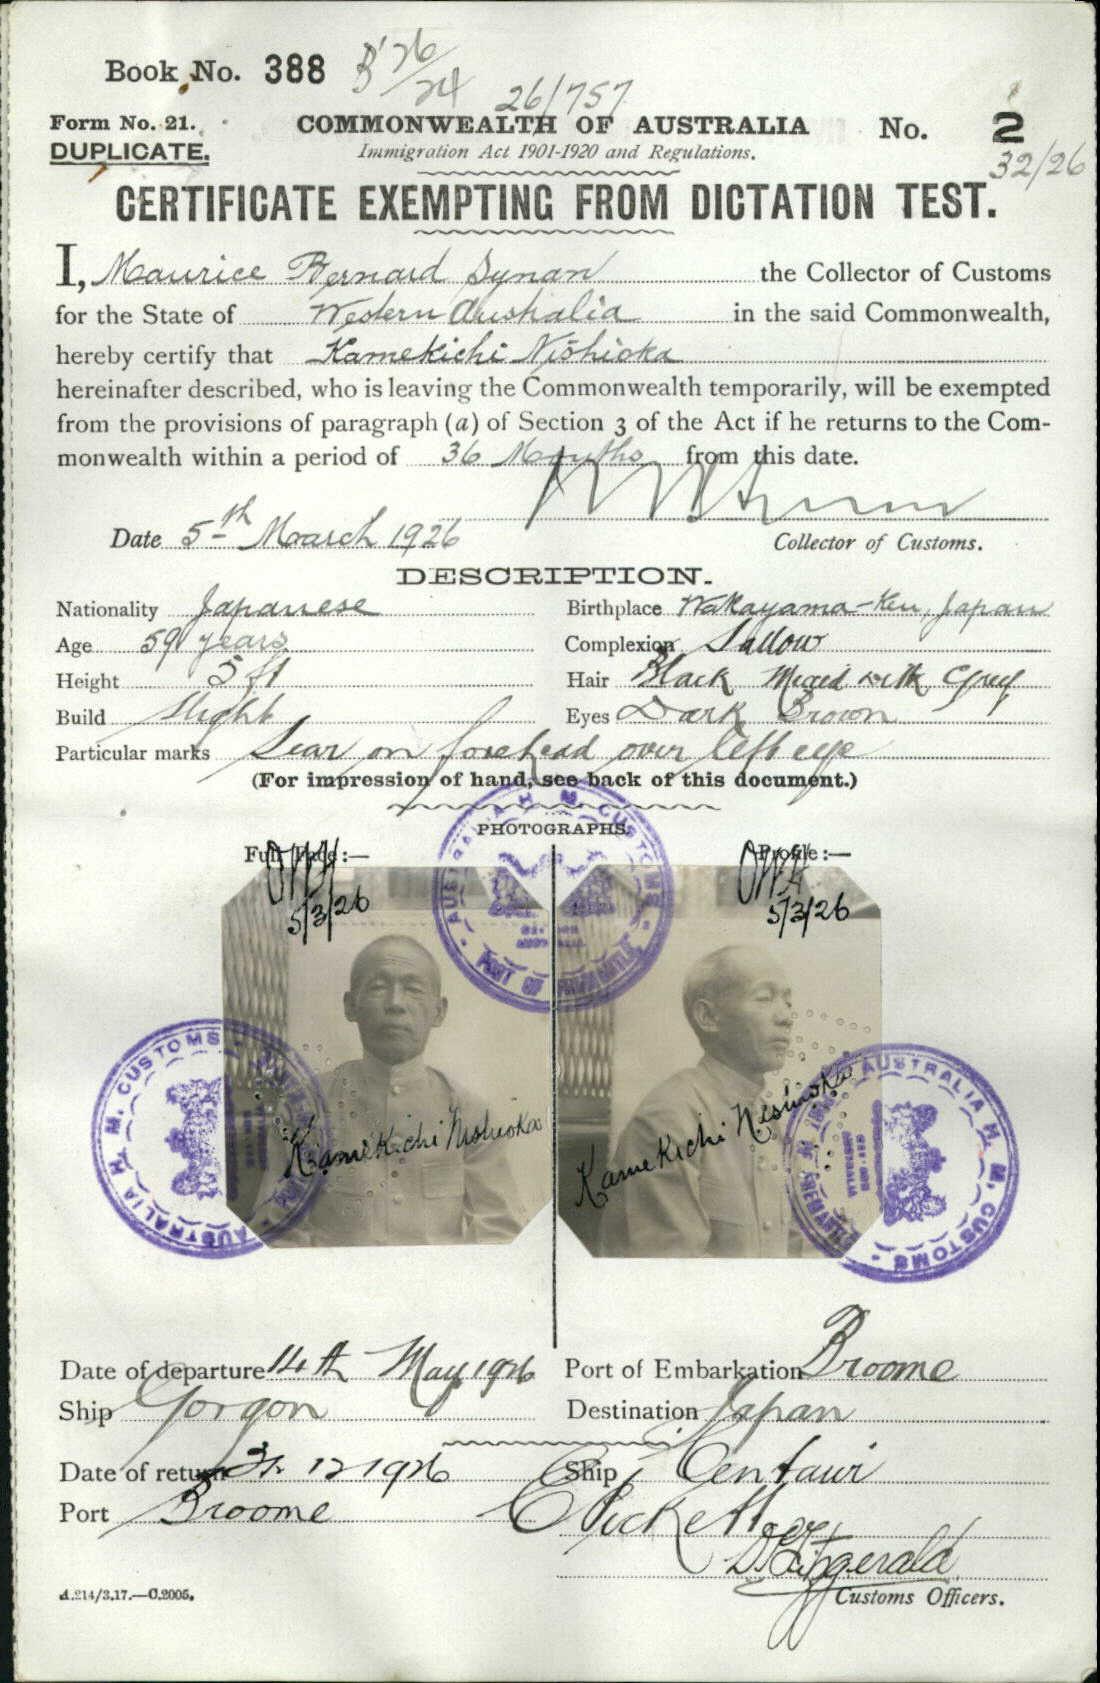 Book No. 388 B 26/24
26/757
Form No. 21. COMMONWEALTH OF AUSTRALIA No. 2
DUPLICATE. Immigration Act 1901-1920 and Regulations. 32/26
CERTIFICATE EXEMPTING FROM DICTATION TEST.
I, Maurice Bernard Synan the Collector of Customs
for the State of Western Australia in the said Commonwealth,
hereby certify that Kamekichi Nishioka
hereinafter described, who is leaving the Commonwealth temporarily, will be exempted
from the provisions of paragraph (a) of Section 3 of the Act if he returns to the Com-
monwealth within a period of 36 Months from this date.
Date 5th March 1926 Collector of Customs.
DESCRIPTION.
Nationality Japanese Birthplace Wakayama-Ken, Japan
Age 59 years Complexion Sallow
Height 5 ft Hair Black Mixed with Grey
Build Slight Eyes Dark Brown
Particular marks Scar on forehead over left eye
(For impression of hand, see back of this document.)
PHOTOGRAPHS.
Full Face:— Profile:—
OWH OWH
5/3/26 5/3/26
AUSTRALIA H. M. CUSTOMS
PORT OF FREMANTLE
Kamekichi Nishioka Kamekichi Nishioka
AUSTRALIA H. M. CUSTOMS AUSTRALIA H. M. CUSTOMS
Date of departure 14th May 1926 Port of Embarkation Broome
Ship Gorgon Destination Japan
Date of return 12 1926 Ship Centaur
Port Broome
D Fitzgerald
A.214/3.17.—C.2005. Customs Officers.